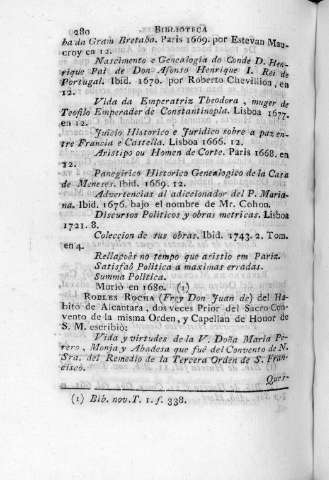 280 BIBLIOTECA
ba da Gram Bretaña. Paris 1669. por Estevan Mau-
croy en 12.
Nascimento e Genealogia do Conde D. Hen-
rique Pai de Don Afonso Henrique I. Rei de
Portugal. Ibid. 1670. por Roberto Chevillion, en
12.
Vida da Emperatriz Theodora, muger de
Teofilo Emperador de Constantinopla. Lisboa 1677.
en 12.
Juicio Historico e Juridico sobre a paz en-
tre Francia e Castella. Lisboa 1666. 12.
Aristipo ou Homen de Corte. Paris 1668. en
12.
Panegirico Historico Genealogico de la Casa
de Meneses. Ibid. 1669. 12.
Advertencias al adicionador del P. Maria-
na. Ibid. 1676. bajo el nombre de Mr. Cohon.
Discursos Politicos y obras metricas. Lisboa
1721. 8.
Coleccion de sus obras. Ibid. 1743. 2. Tom.
en 4.
Rellaçoẽs no tempo que asistio em Pariz.
Satisfaõ Politica a maximas erradas.
Summa Politica.
Murió en 1680. (1)
ROBLES ROCHA (Frey Don Juan de) del Ha-
bito de Alcantara, dos veces Prior del Sacro Con-
vento de la misma Orden, y Capellan de Honor de
S. M. escribió:
Vida y virtudes de la V. Doña Maria Pe-
rero, Monja y Abadesa que fué del Convento de N.
Sra. del Remedio de la Tercera Orden de S. Fran-
cisco.
Quei-
(1) Bib. nov. T. 1. f. 338.